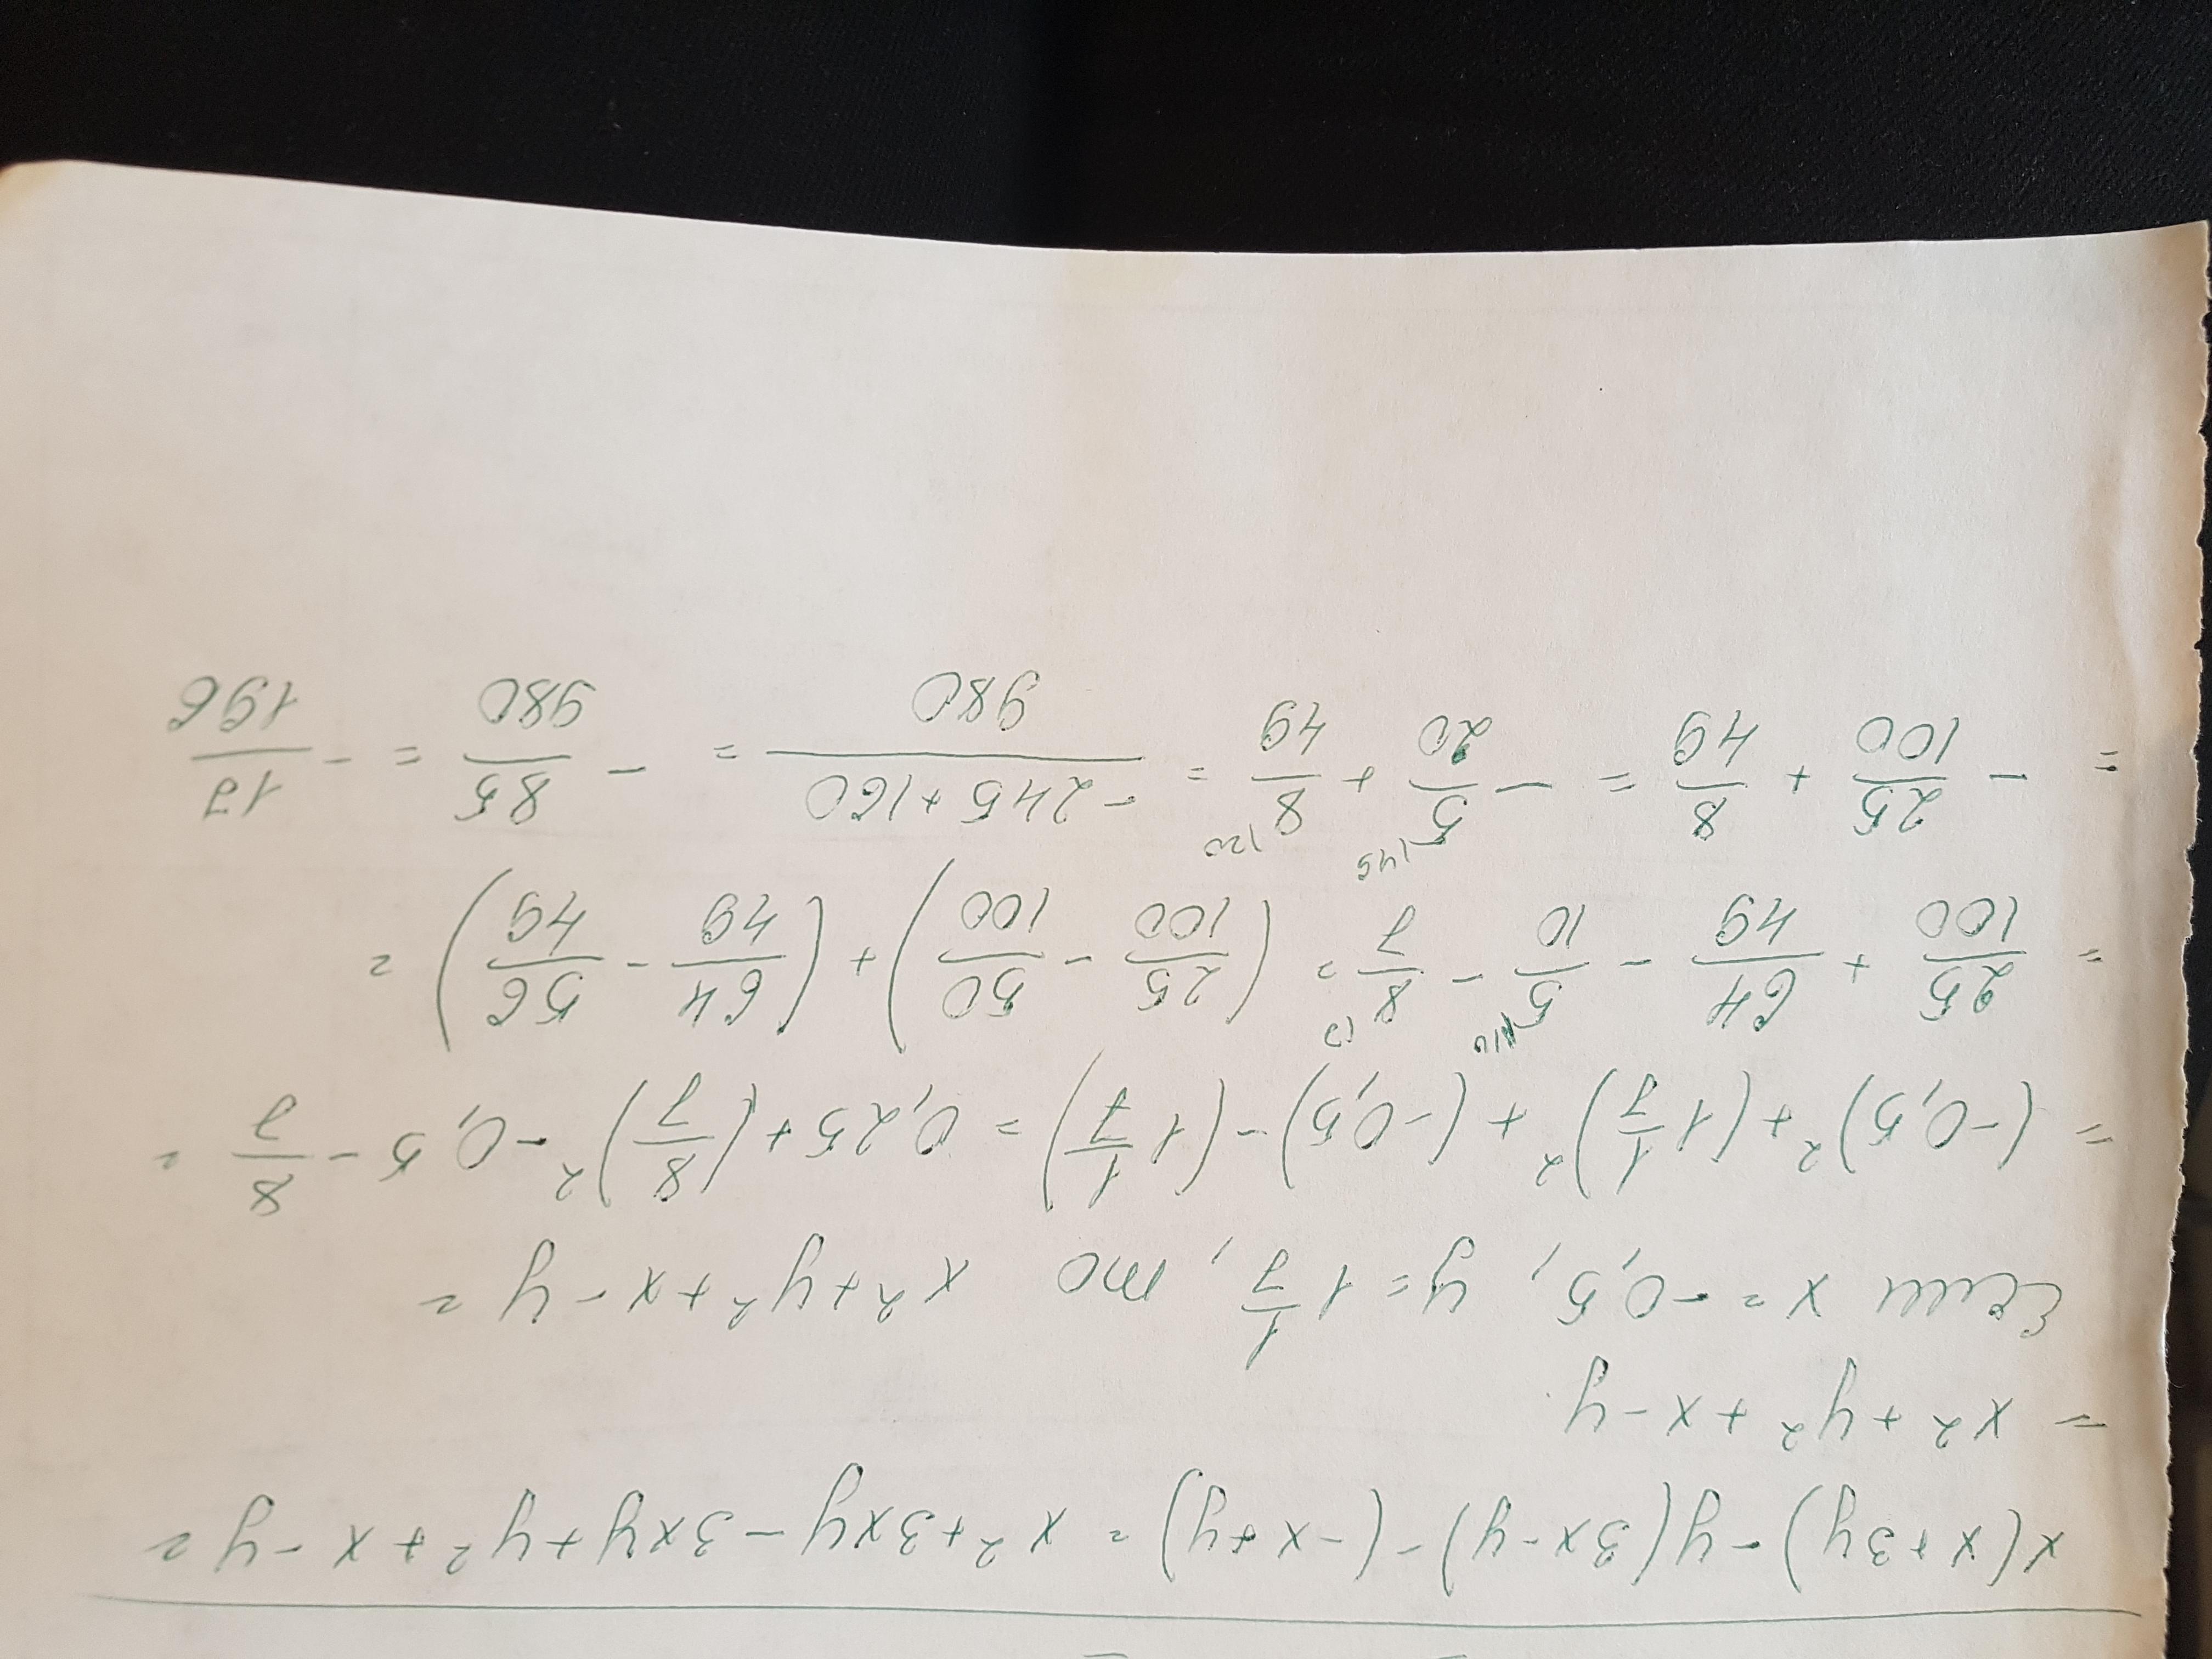 x(x+3y)-y(3x-y)-(-x+y)=x²+3xy-3xy+y²+x-y=
=x²+y²+x-y
Если x=-0,5, y=1 1/7, то x²+y²+x-y=
=(-0,5)²+(1 1/7)²+(-0,5)-(1 1/7)=0,25+(8/7)²-0,5-8/7=
=25/100+64/49-5/10-8/7=(25/100-50/100)+(64/49-56/49)=
=-25/100+8/49=-5/20+8/49=(-245+160)/980=-85/980=-17/196